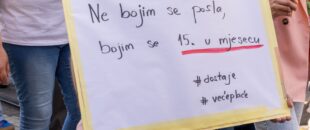 Ne bojim se posla,
bojim se 15. u mjesecu
#dostaje
#većeplaće